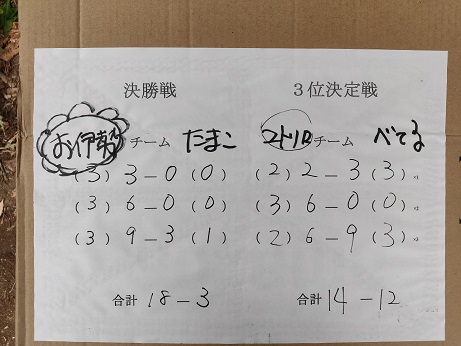 決勝戦
お伊勢 チーム たまこ
(3) 3-0 (0)
(3) 6-0 (0)
(3) 9-3 (1)
合計 18-3
3位決定戦
コトリロ チーム べてる
(2) 2-3 (3)
(3) 6-0 (0)
(2) 6-9 (3)
合計 14-12